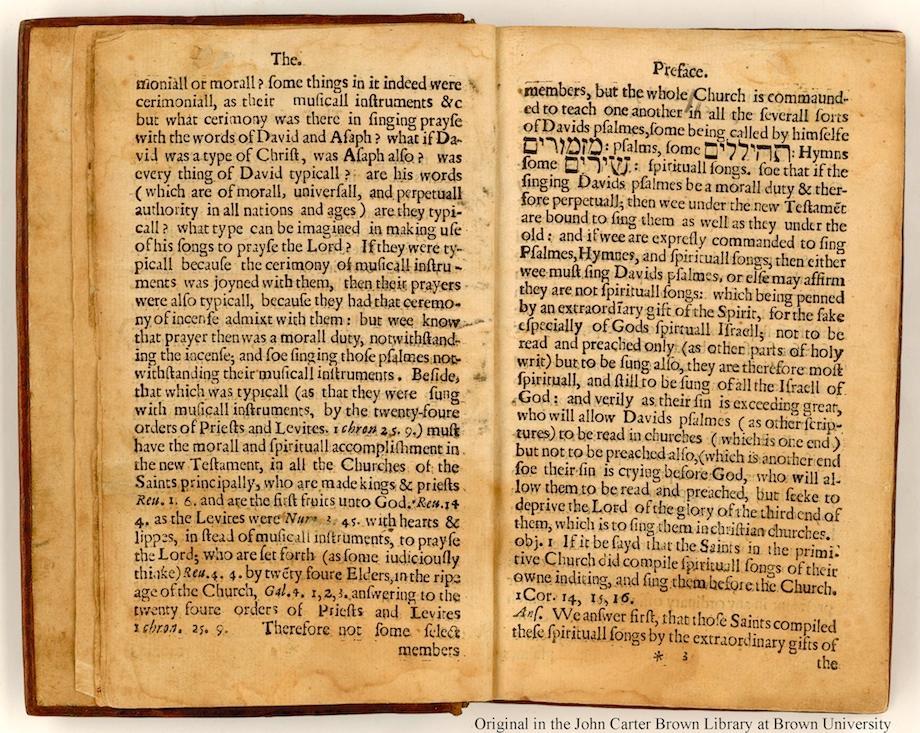 The.
moniall or morall? ſome things in it indeed were
cerimoniall, as their muſicall inſtruments &c
but what cerimony was there in ſinging prayſe
with the words of David and Aſaph? what if Da-
vid was a type of Chriſt, was Aſaph alſo? was
every thing of David typicall? are his words
(which are of morall, univerſall, and perpetuall
authority in all nations and ages) are they typi-
call? what type can be imagined in making uſe
of his ſongs to prayſe the Lord? If they were ty-
picall becauſe the cerimony of muſicall inſtru-
ments was joyned with them, then their prayers
were alſo typicall, becauſe they had that ceremo-
ny of incenſe admixt with them: but wee know
that prayer then was a morall duty, notwithſtand-
ing the incenſe; and ſoe ſinging thoſe pſalmes not-
withſtanding their muſicall inſtruments. Beſide,
that which was typicall (as that they were ſung
with muſicall inſtruments, by the twenty-foure
orders of Prieſts and Levites. 1 chron 25. 9.) muſt
have the morall and ſpirituall accompliſhment in
the new Teſtament, in all the Churches of the
Saints principally, who are made kings & prieſts
Reu. 1. 6. and are the firſt fruits unto God. Reu. 14
4. as the Levites were Num. 3. 45. with hearts &
lippes, in ſtead of muſicall inſtruments, to prayſe
the Lord; who are ſet forth (as ſome iudiciouſly
thinke) Reu. 4. 4. by twẽty foure Elders, in the ripe
age of the Church, Gal. 4. 1,2,3. anſwering to the
twenty foure orders of Prieſts and Levites
1 chron. 25. 9. Therefore not ſome ſelect
members
Preface.
members, but the whole Church is commaund-
ed to teach one another in all the ſeverall ſorts
of Davids pſalmes, ſome being called by himſelfe
מזמורים: pſalms, ſome תהיללים: Hymns
ſome שירים: ſpirituall ſongs. ſoe that if the
ſinging Davids pſalmes be a morall duty & ther-
fore perpetuall; then wee under the new Teſtamẽt
are bound to ſing them as well as they under the
old: and if wee are expreſly commanded to ſing
Pſalmes, Hymnes, and ſpirituall ſongs, then either
wee muſt ſing Davids pſalmes, or elſe may affirm
they are not ſpirituall ſongs: which being penned
by an extraordiary gift of the Spirit, for the ſake
eſpecially of Gods ſpirtuall Iſraell; not to be
read and preached only (as other parts of holy
writ) but to be ſung alſo, they are therefore moſt
ſpirituall, and ſtill to be ſung of all the Iſraell of
God: and verily as their ſin is exceeding great,
who will allow Davids pſalmes (as other ſcrip-
tures) to be read in churches (which is one end)
but not to be preached alſo, (which is another end
ſoe their ſin is crying before God, who will al-
low them to be read and preached, but ſeeke to
deprive the Lord of the glory of the third end of
them, which is to ſing them in chriſtian churches.
obj. 1 If it be ſayd that the Saints in the primi-
tive Church did compile ſpirituall ſongs of their
owne inditing, and ſing them before the Church.
1Cor. 14, 15, 16.
Anſ. We anſwer firſt, that thoſe Saints compiled
theſe ſpirituall ſongs by the extraordinary gifts of
* 3
the
Original in the John Carter Brown Library at Brown University